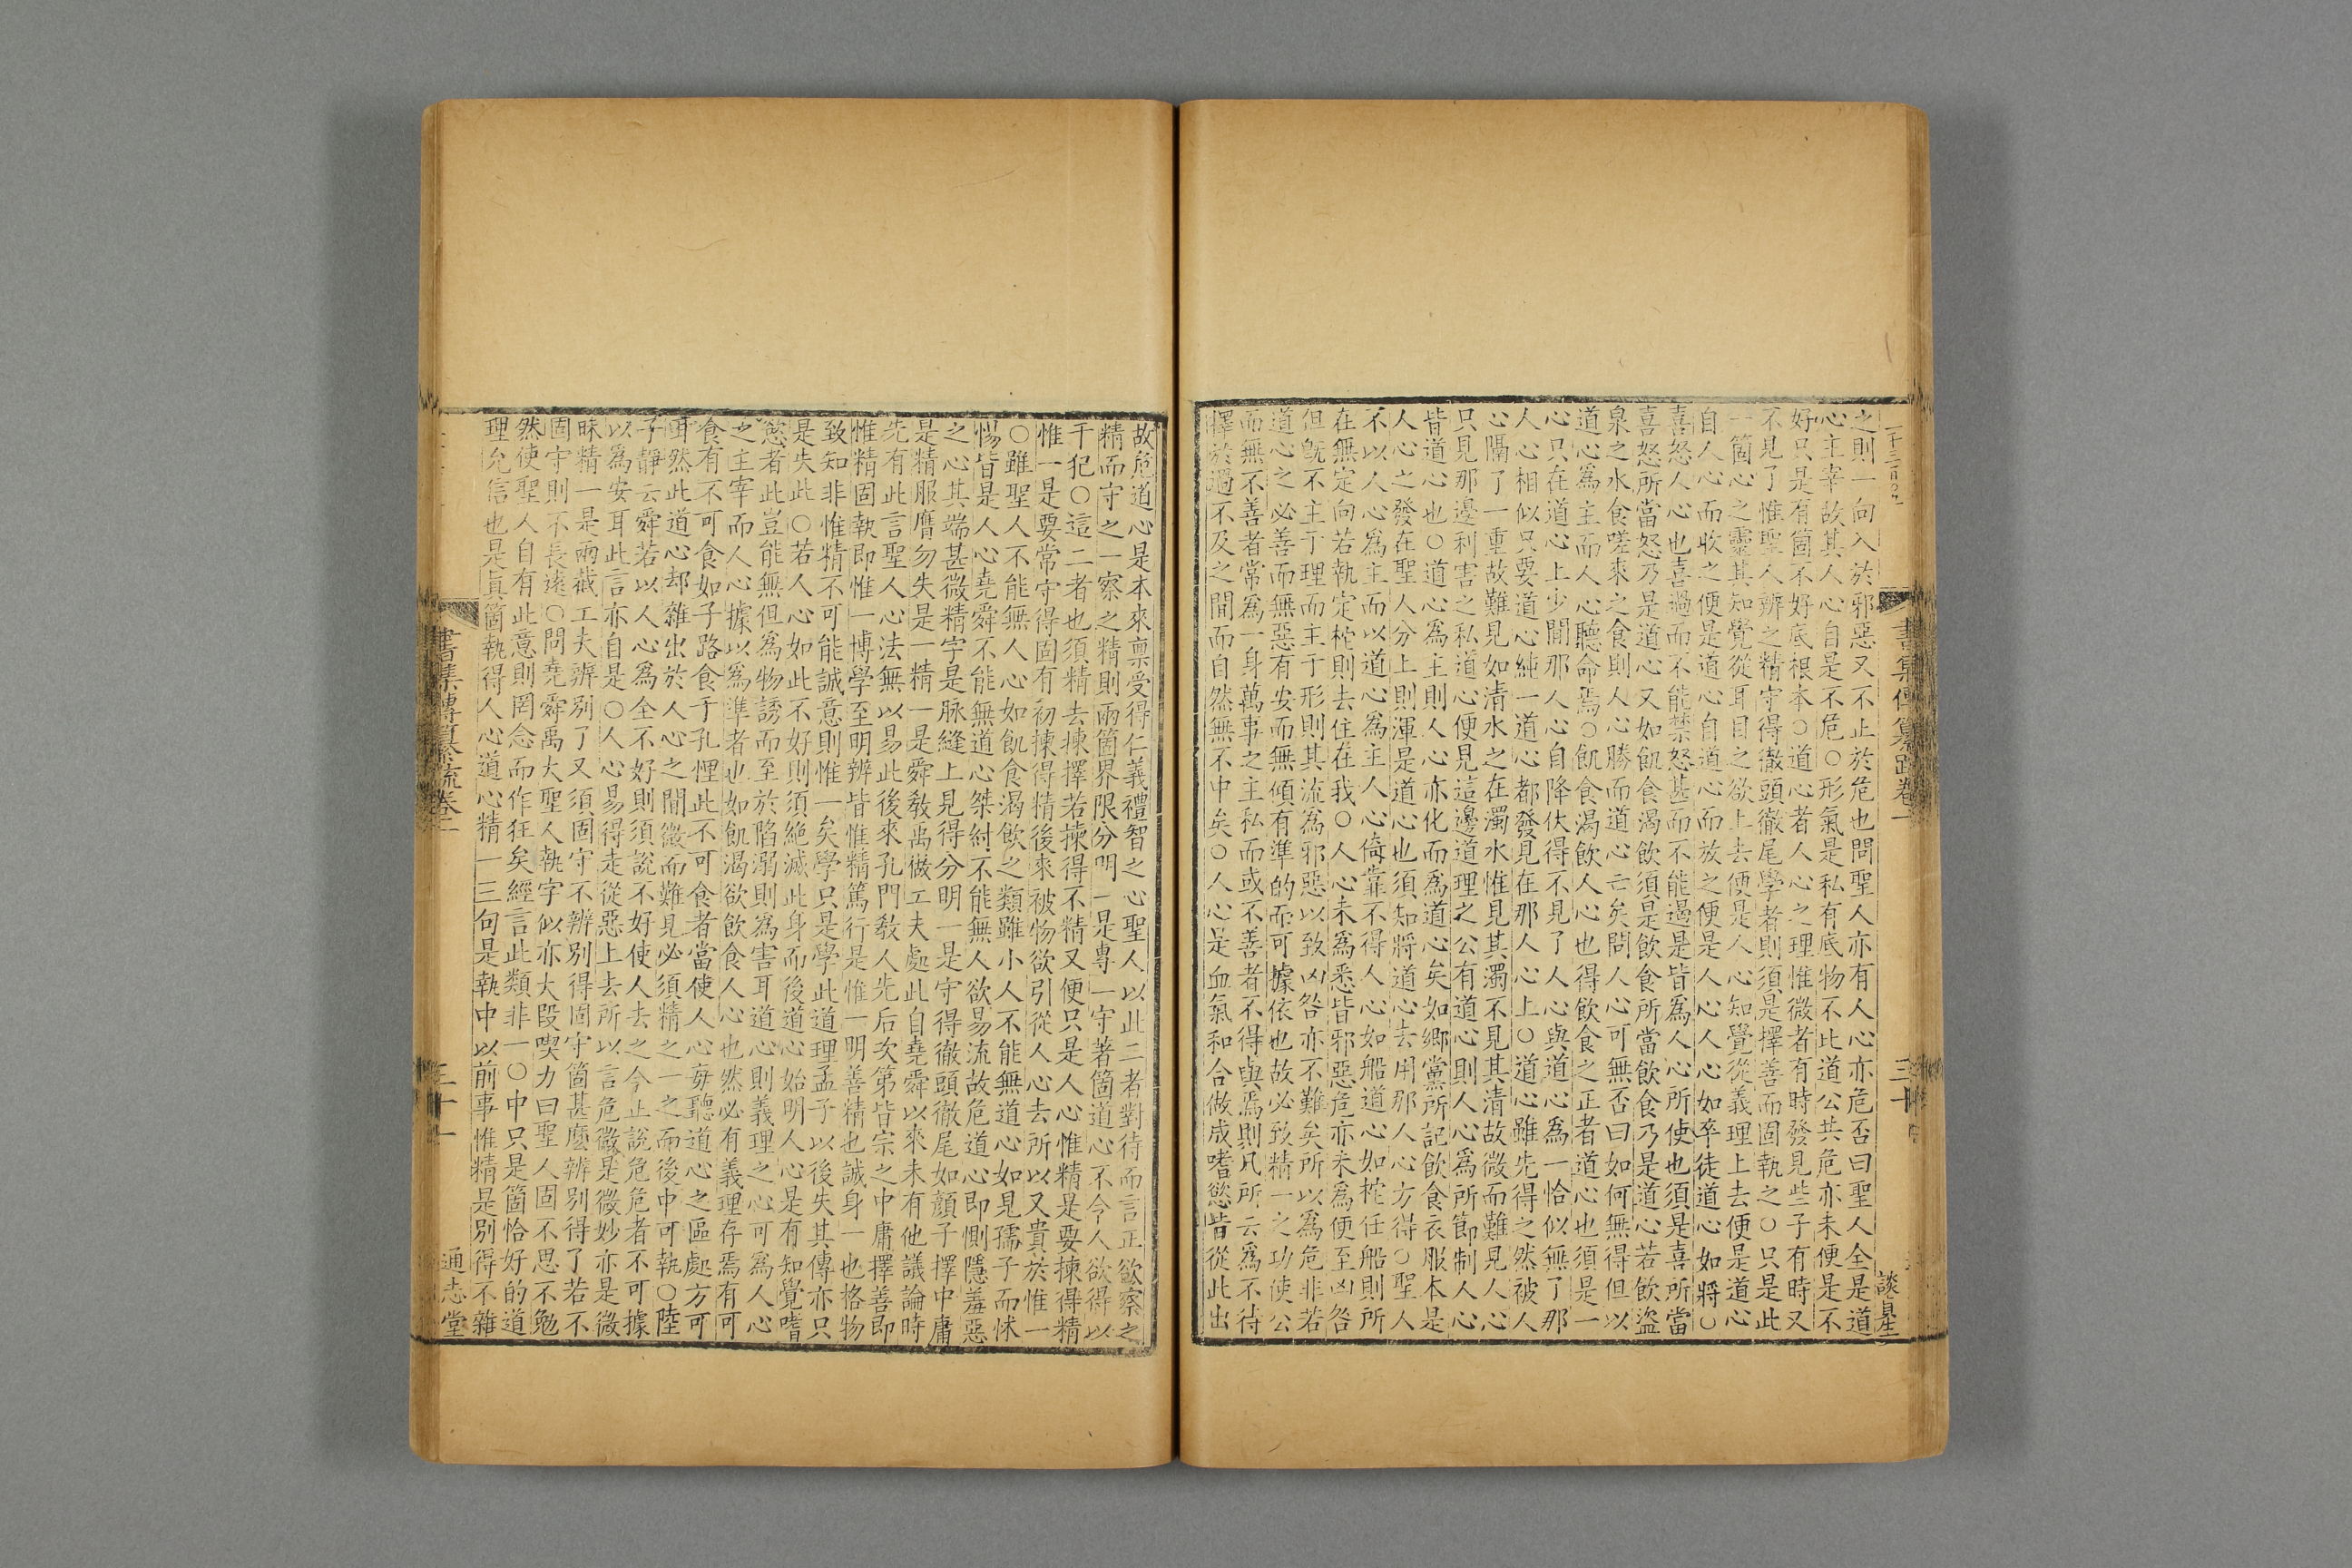 之則一向入於邪惡又不止於危也問聖人亦有人心亦危否曰聖人全是道
心主宰故其人心自是不危○形氣是私有底物不比道公共危亦未便是不
好只是有箇不好底根本○道心者人心之理惟微者有時發見些子有時又
不見了惟聖人辨之精守得徹頭徹尾學者則須是擇善而固執之○只是此
一箇心之靈其知覺從耳目之欲上去便是人心知覺從義理上去便是道心
自人心而收之便是道心自道心而放之便是人心人心如卒徒道心如將○
喜怒人心也喜過而不能禁怒甚而不能遏是皆為人心所使也須是喜所當
喜怒所當怒乃是道心又如飢食渴飲須是飲食所當飲食乃是道心若飲盜
泉之水食嗟來之食則人心勝而道心亡矣問人心可無否曰如何無得但以
道心爲主而人心聽命焉○飢食渴飲人心也得飲食之正者道心也須是一
心只在道心上少間那人心自降伏得不見了人心與道心為一恰似無了那
人心相似只要道心純一道心都發見在那人心上○道心雖先得之然被人
心隔了一重故難見如清水之在濁水惟見其濁不見其清故微而難見人心
只見那邊利害之私道心便見這邊道理之公有道心則人心爲所節制人心
皆道心也○道心爲主則人心亦化而爲道心矣如鄉黨所記飲食衣服本是
人心之發在聖人分上則渾是道心也須知將道心去用那人心方得○聖人
不以人心爲主而以道心爲主人心倚靠不得人心如船道心如柁任船則所
在無定向若執定柁則去住在我○人心未爲悉皆邪惡危亦未爲便至凶咎
但旣不主于理而主于形則其流爲邪惡以致凶咎亦不難矣所以爲危非若
道心之必善而無惡有安而無傾有準的而可據依也故必致精一之功使公
而無不善者常爲一身萬事之主私而或不善者不得與焉則凡所云爲不待
擇於過不及之間而自然無不中矣○人心是血氣和合做成嗜慾皆從此出
書集傳纂疏卷一
三十
故危道心是本來禀受得仁義禮智之心聖人以此二者對待而言正欲察之
精而守之一察之精則兩箇界限分明一是專一守著箇道心不令人欲得以
干犯○這二者也須精去揀擇若揀得不精又便只是人心惟精是要揀得精
惟一是要常守得固有初揀得精後來被物欲引從人心去所以又貴於惟一
○雖聖人不能無人心如飢食渴飲之類雖小人不能無道心如見孺子而怵
惕皆是人心堯舜不能無道心桀紂不能無人欲易流故危道心即惻隱羞惡
之心其端甚微精字是脉縫上見得分明一是守得徹頭徹尾如顔子擇中庸
是精服膺勿失是一精一是舜教禹做工夫處此自堯舜以來未有他議論時
先有此言聖人心法無以易此後來孔門教人先后次第皆宗之中庸擇善即
惟精固執即惟一博學至明辨皆惟精篤行是惟一明善精也誠身一也格物
致知非惟精不可能誠意則惟一矣學只是學此道理孟子以後失其傳亦只
是失此○若人心如此不好則須絶滅此身而後道心始明人心是有知覺嗜
慾者此豈能無但為物誘而至於陷溺則爲害耳道心則義理之心可爲人心
之主宰而人心據以爲準者也如飢渴欲飲食人心也然必有義理存焉有可
食有不可食如子路食于孔悝此不可食者當使人心毋聽道心之區處方可
耳然此道心却雜出於人心之間微而難見必須精之一之而後中可執○陸
子靜云舜若以人心爲全不好則須說不好使人去之今止說危危者不可據
以爲安耳此言亦自是○人心易得走從惡上去所以言危微是微妙亦是微
昧精一是兩截工夫辨別了又須固守不辨別得固守箇甚麽辨別得了若不
固守則不長遠○問堯舜禹大聖人執字似亦大段喫力曰聖人固不思不勉
然使聖人自有此意則罔念而作狂矣經言此類非一○中只是箇恰好的道
理允信也是眞箇執得人心道心精一三句是執中以前事惟精是別得不雜
書集傳纂疏卷一
三十一
通志堂